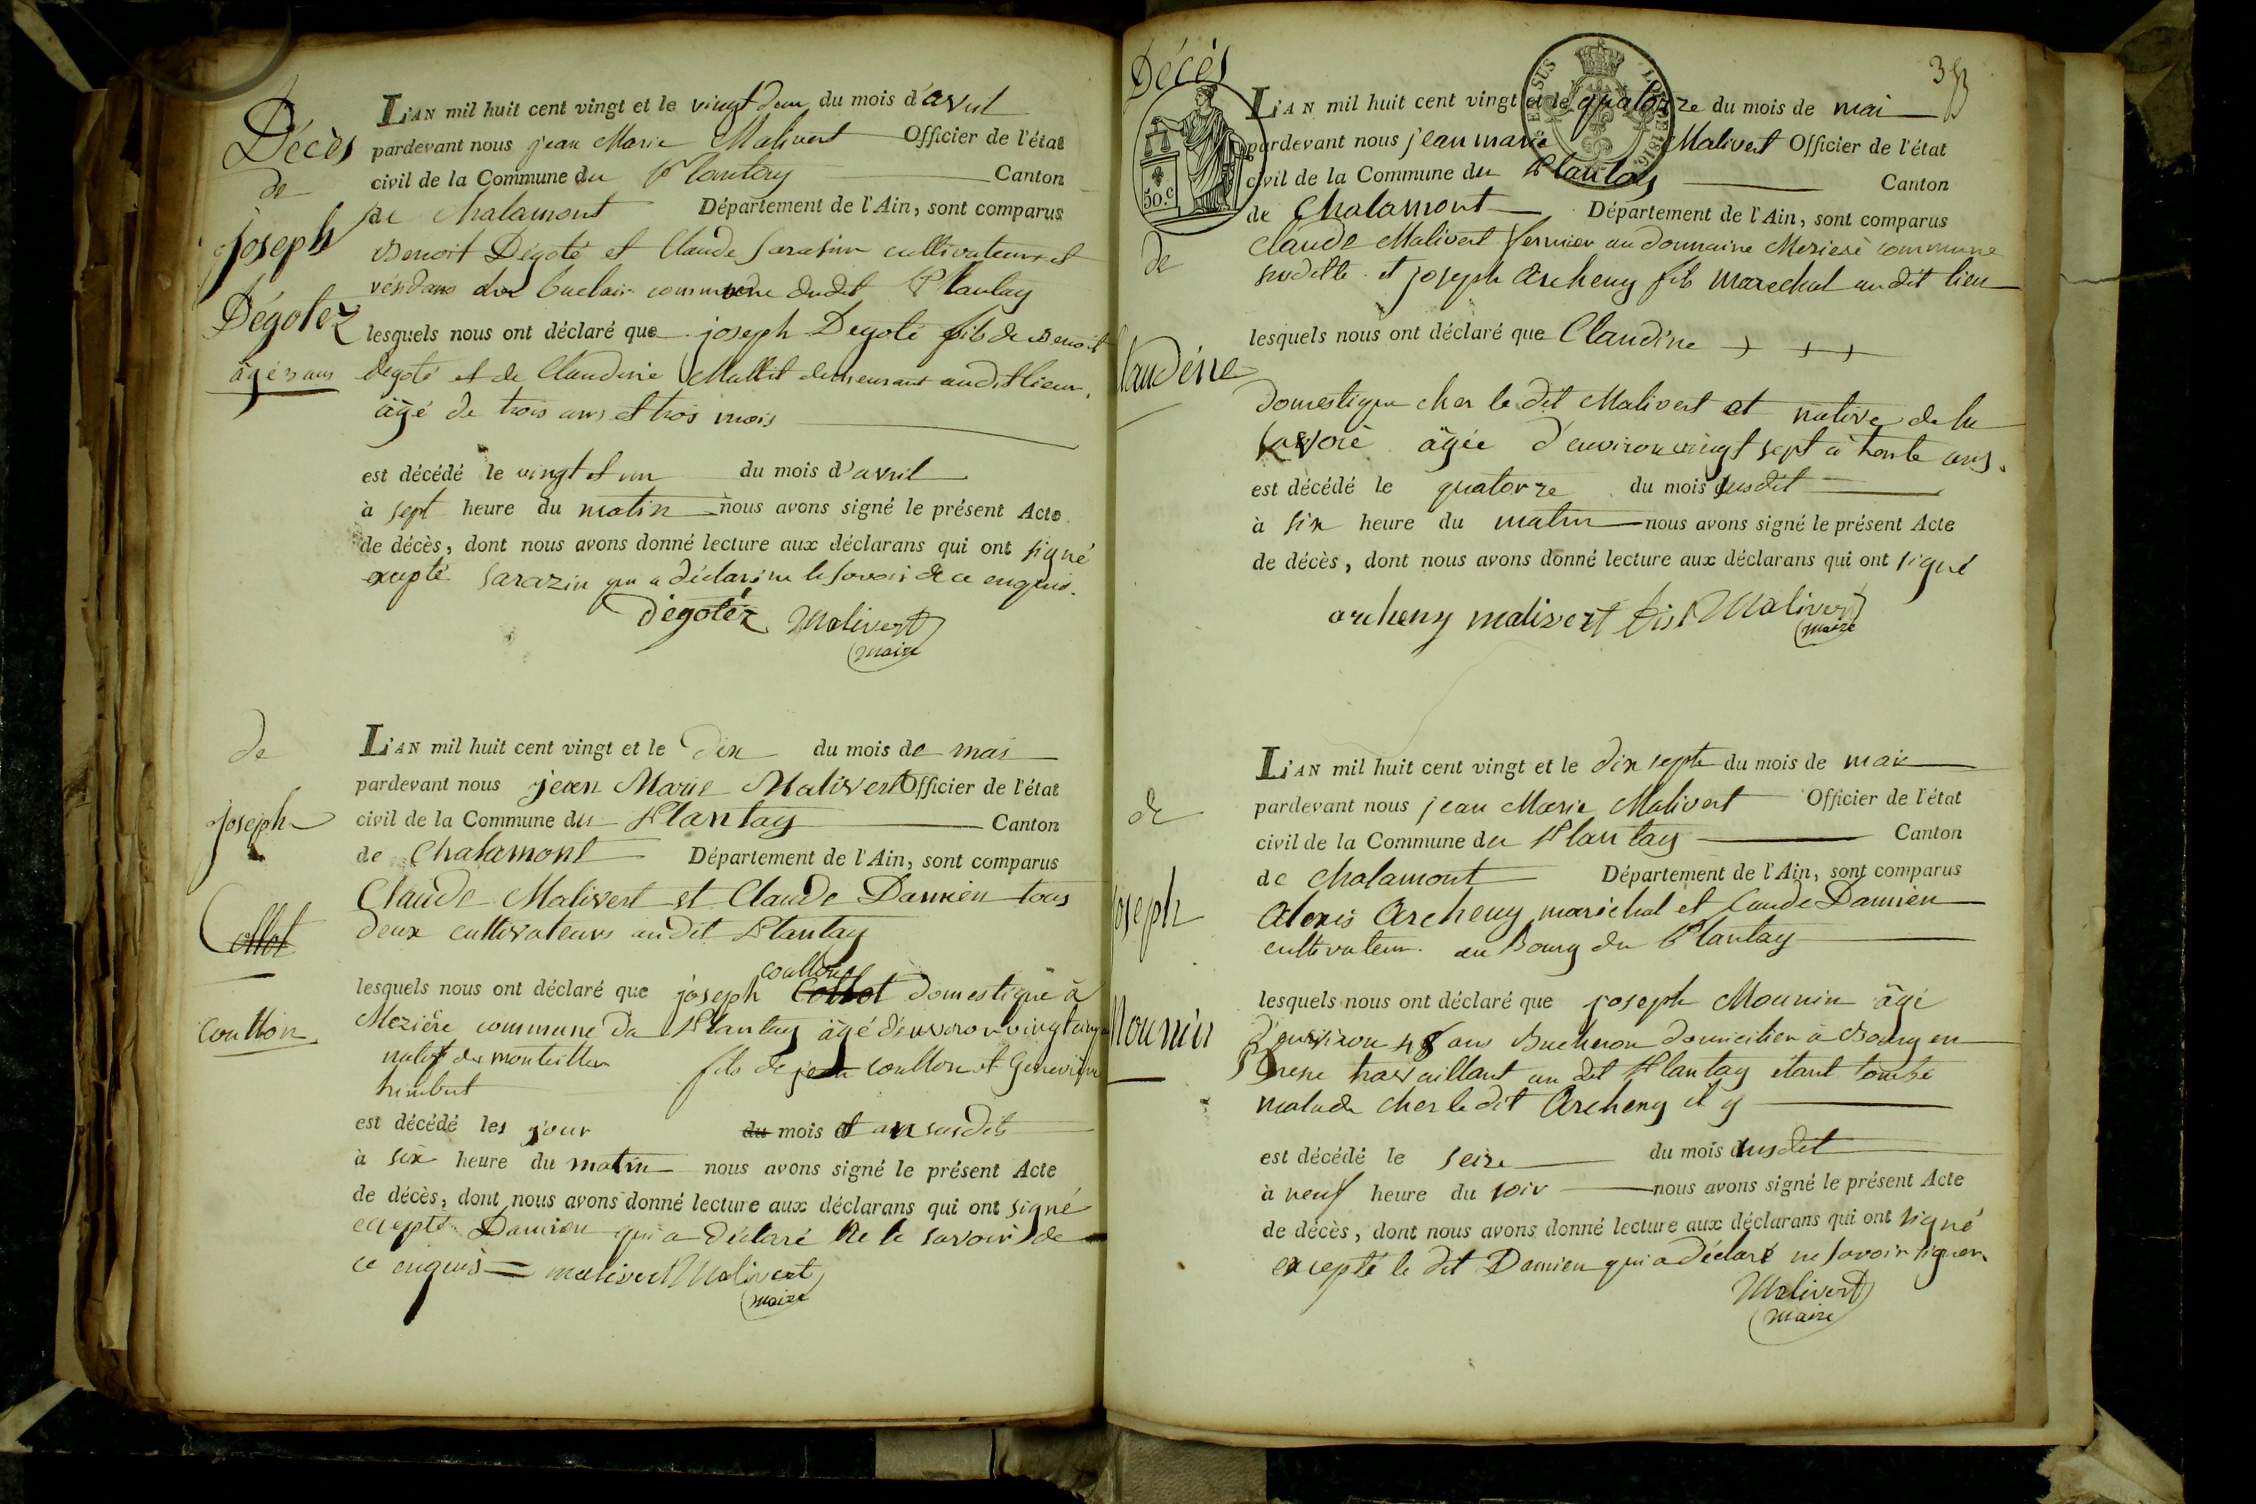 Décès
de
joseph
Dégotez
âgé 3 ans
L'AN mil huit cent vingt et le vingt deux du mois d'avril
pardevant nous jean Marie Malivert Officier de l'état
civil de la Commune du Plantay Canton
de Chalamont Département de l'Ain, sont comparus
Benoit Dégoté et Claude Sarasin cultivateurs et
commune dudit Plantay
lesquels nous ont déclaré que joseph Degoté fils de Benoit
Degoté et de Claudine Mallet demeurant audit lieu,
âgé de trois ans et trois mois
est décédé le vingt et un du mois d'avril
à sept heure du matin nous avons signé le présent Acte
de décès, dont nous avons donné lecture aux déclarans qui ont signé
excepté Sarazin qui a déclaré ne le savoir de ce enquis.
Dégotéz Malivert
maire
de
joseph
Collot
Coullon
L'AN mil huit cent vingt et le dix du mois de mai
pardevant nous jean Marie Malivert Officier de l'état
civil de la Commune du Plantay Canton
de Chalamont Département de l'Ain, sont comparus
Claude Malivert et Claude Damien tous
deux cultivateurs audit Plantay
coullon
lesquels nous ont déclaré que joseph Collot domestique à
Mezière commune du Plantay âgé d'environ vingt cinq
natif du montellier fils de jean Coullon et Genevieve
himbert
est décédé les jour du mois et an susdits
à six heure du matin nous avons signé le présent Acte
de décès, dont nous avons donné lecture aux déclarans qui ont signé
excepté Damien qui a déclaré ne le savoir de
ce enquis = malivert Malivert
maire
Décès
50.c
EN SUS
LOI DE 1816
de
Claudine
L'AN mil huit cent vingt et le quatorze du mois de mai
pardevant nous jean marie Malivert Officier de l'état
civil de la Commune du Plantay Canton
de Chalamont Département de l'Ain, sont comparus
Claude Malivert fermier au domaine Mezierè commune
susditte et joseph Archeny fils marechal audit lieu
lesquels nous ont déclaré que Claudine + + +
Domestique chez le dit Malivert et native de la
savoie âgée d'environ vingt sept à trente ans.
est décédé le quatorze du mois susdit
à six heure du matin nous avons signé le présent Acte
de décès, dont nous avons donné lecture aux déclarans qui ont signé
archeny malivert fis Malivert
maire
de
joseph
Mounin
L'AN mil huit cent vingt et le dix sept du mois de mai
pardevant nous jean Marie Malivert Officier de l'état
civil de la Commune du Plantay Canton
de Chalamont Département de l'Ain, sont comparus
Alexis Archeny maréchal et Claude Damien
cultivateur au Bourg du Plantay
lesquels nous ont déclaré que joseph Mounin âgé
d'environ 48 ans Bucheron domicilier a Bourg en
Bresse travaillant au dit Plantay étant tombé
malade chez le dit Archeny il y
est décédé le seize du mois susdit
à neuf heure du soir nous avons signé le présent Acte
de décès, dont nous avons donné lecture aux déclarans qui ont signé
excepté le dit Damien qui a déclaré ne savoir signer.
Malivert
maire